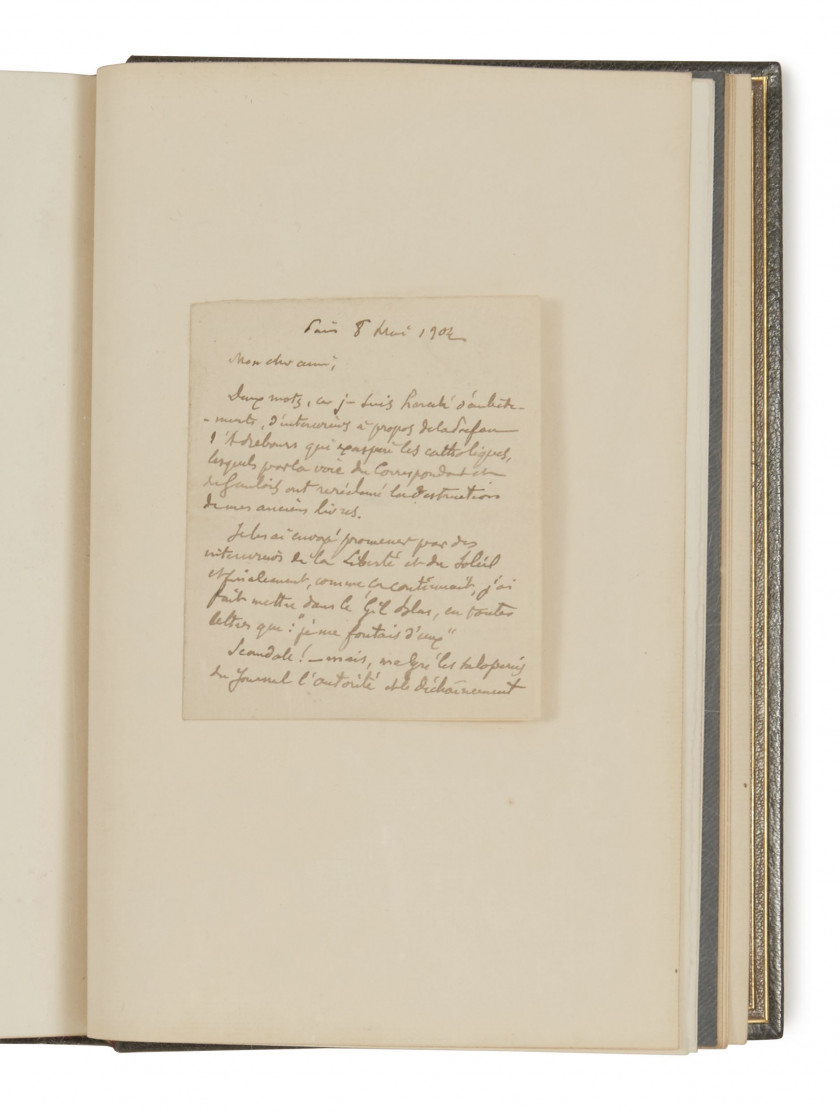 Paris 8 Mai 1904
Mon cher ami,
Deux mots, car je suis harcelé d'embête-
-ments, d'interviews à propos de la Préface
d'A rebours qui exaspère les catholiques,
lesquels par la voie du Correspondant et
du Gaulois ont reréclamé la destruction
de mes anciens livres.
Je les ai envoyé promener par des
interviews de la Liberté et du Soleil
et finalement, comme ça continuait, j'ai
fait mettre dans le Gil Blas, en toutes
lettres que : "je me foutais d'eux"
Scandale ! - mais, malgré les
du Journal l'autorité et le déchaînement